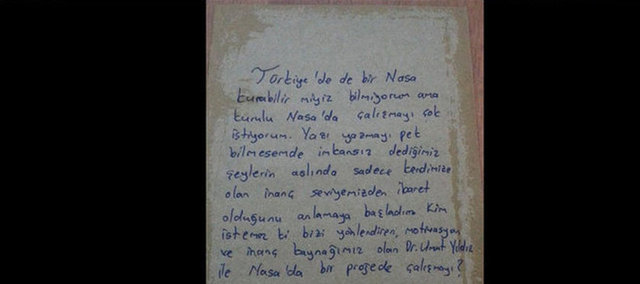 Türkiye'de de bir Nasa
kurabilir miyiz bilmiyorum ama
kurulu Nasa'da çalışmayı çok
istiyorum. Yazı yazmayı pek
bilmesemde imkansız dediğimiz
şeylerin aslında sadece kendimize
olan inanç seviyemizden ibaret
olduğunu anlamaya başladım. Kim
istemez ki bizi yönlendiren, motivasyon
ve inanç kaynağımız olan Dr. Umut Yıldız
ile Nasa'da bir projede çalışmayı?